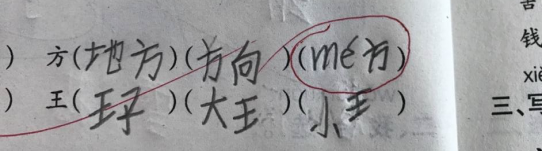 ) 方(地方)(方向)(mé方)
) 王(王子)(大王)(小王)
钱
xiě
三、写